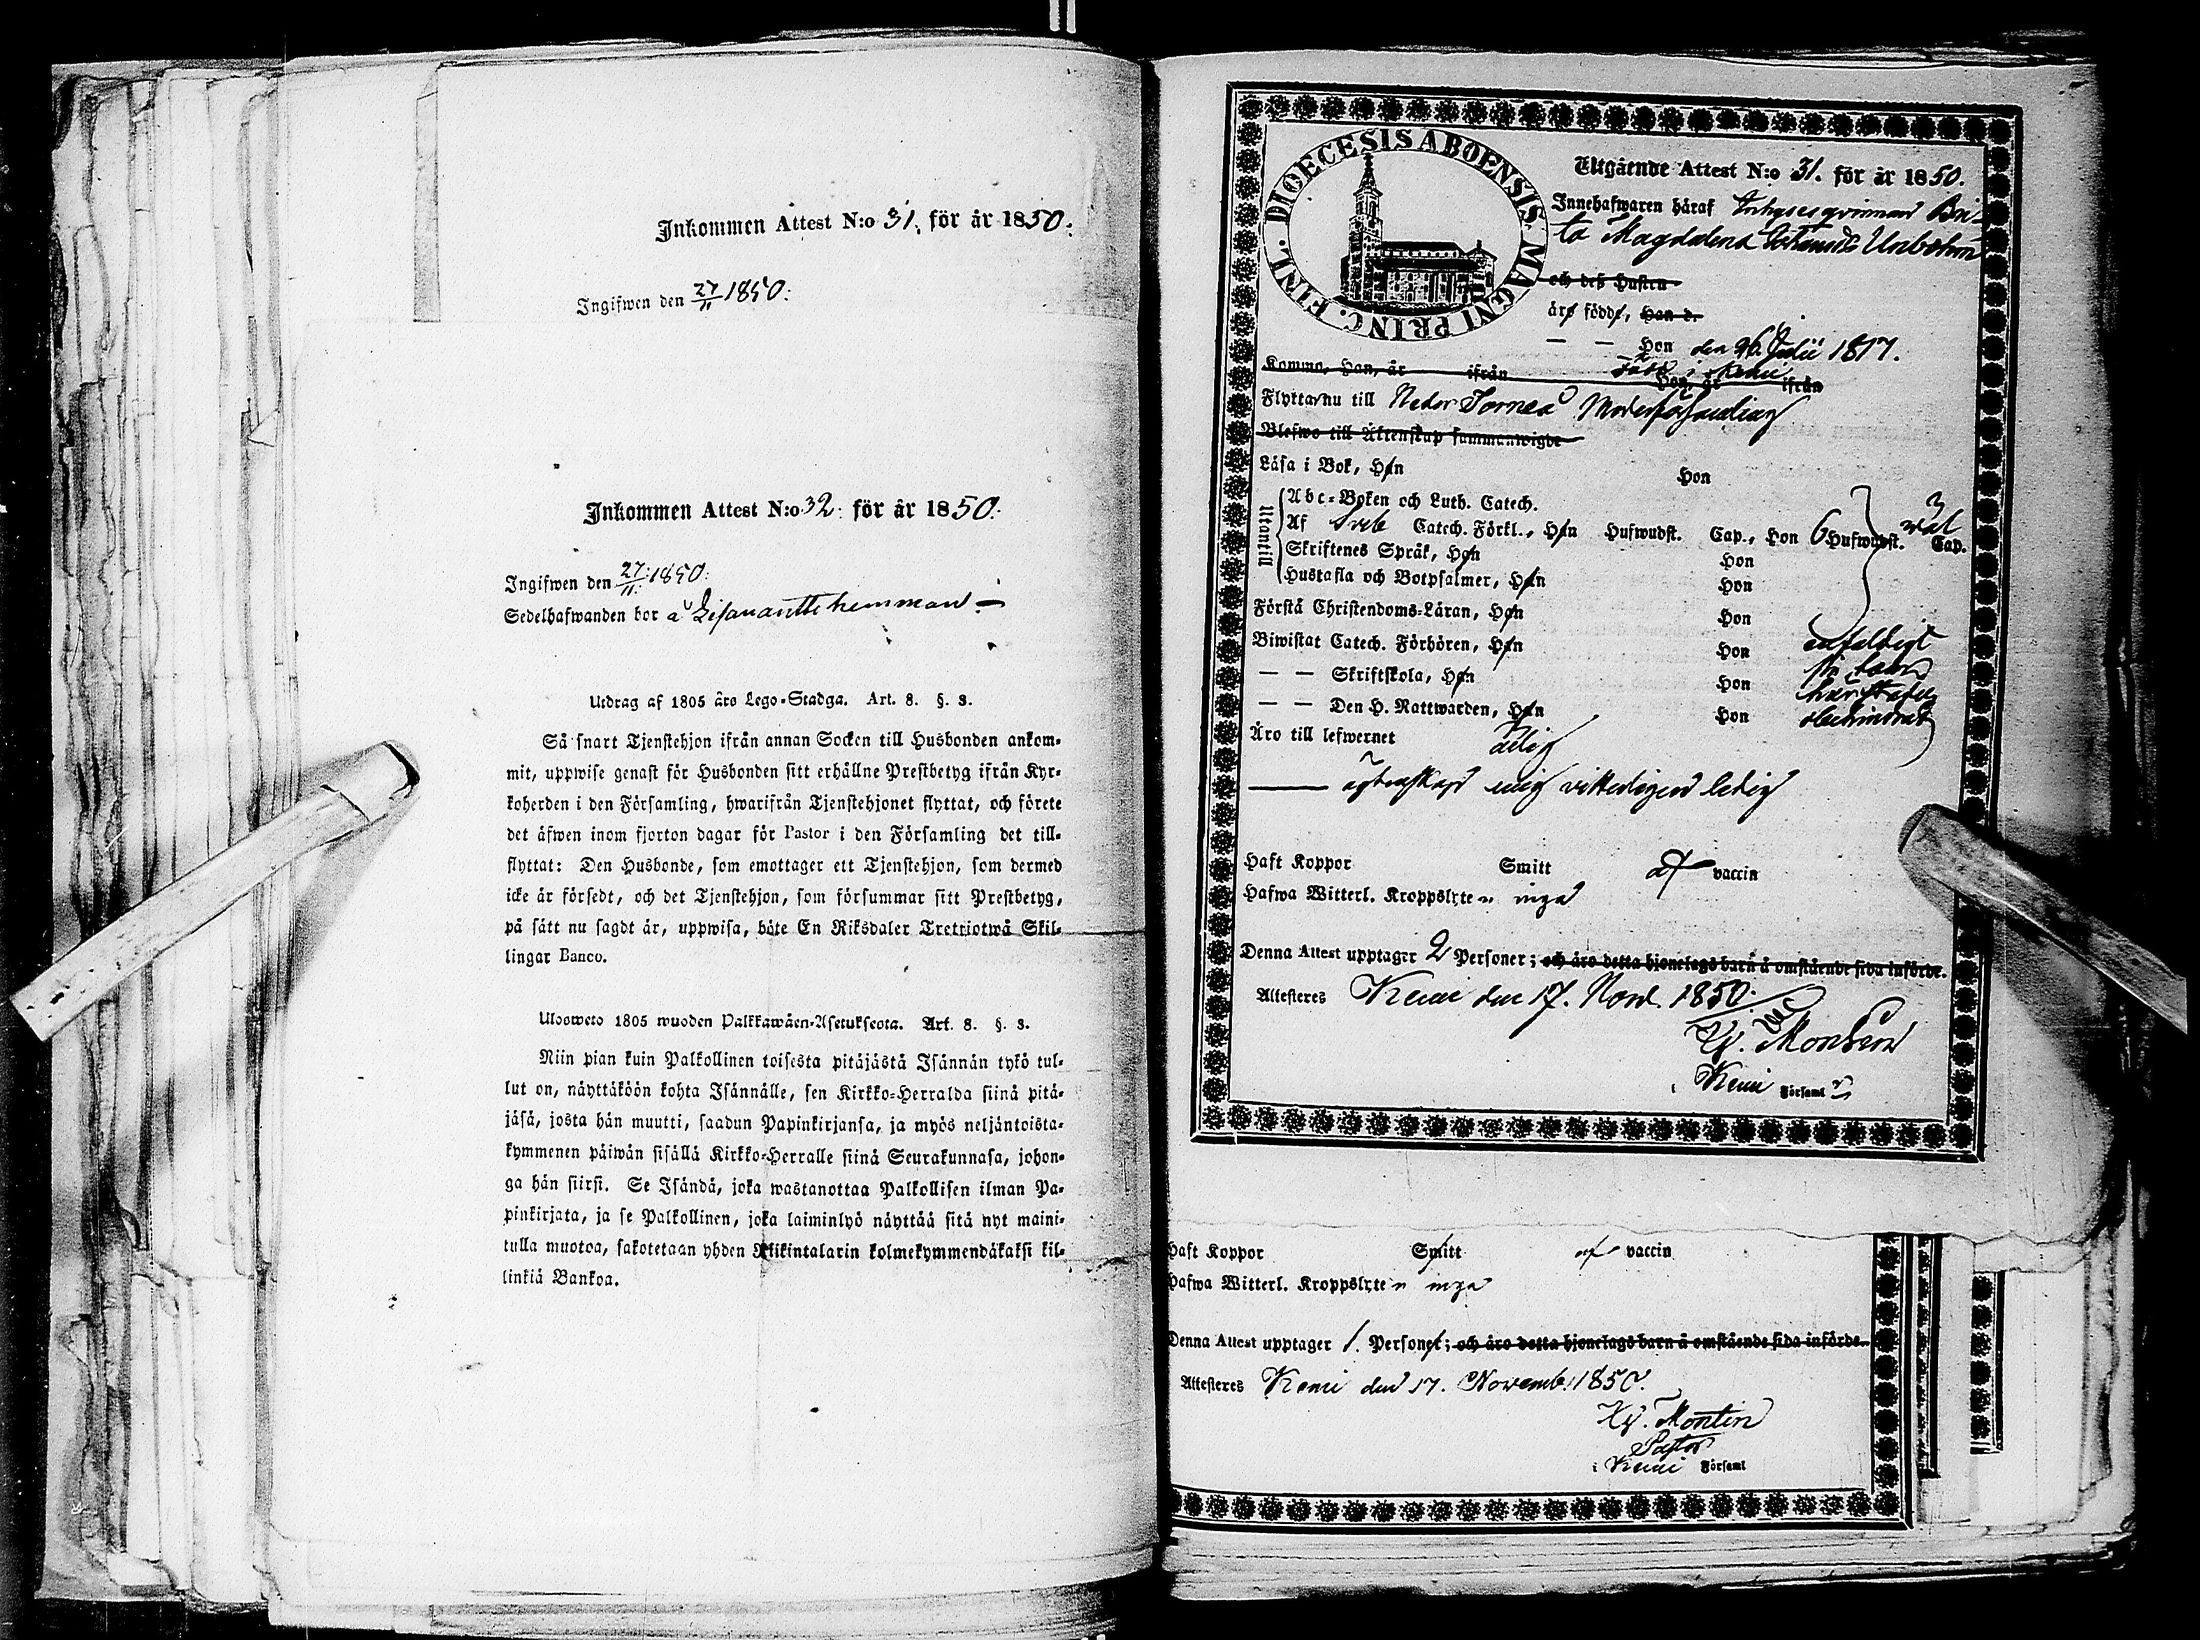 Inkommen Attest N:o 31. för år 1850.
Ingifwen den 27/11 1850.
Inkommen Attest N:o 32. för år 1850.
Ingifwen den 27/11 1850.
Sedelhafwanden bor å hemman.
Utdrag af 1805 års Lego-Stadga. Art. 8. §. 3.
Så snart Tjenstehjon ifrån annan Socken till Husbonden ankom-
mit, uppwise genast för Husbonden sitt erhållne Prestbetyg ifrån Kyr-
koherden i den Församling, hwarifrån Tjenstehjonet flyttat, och förete
det äfwen inom fjorton dagar för Pastor i den Församling det till-
flyttat: Den Husbonde, som emottager ett Tjenstehjon, som dermed
icke är försedt, och det Tjenstehjon, som försummar sitt Prestbetyg,
på sätt nu sagdt är, uppwisa, böte En Riksdaler Trettiotwå Skil-
lingar Banco.
Ulosweto 1805 wuoden Palkkawäen-Asetuksesta. Art. 8. §. 3.
Niin pian kuin Palkollinen toisesta pitäjästä Isännän tykö tul-
lut on, näyttäköön kohta Isännälle, sen Kirkko-Herralda siinä pitä-
jäsä, josta hän muutti, saadun Papinkirjansa, ja myös neljäntoista-
kymmenen päiwän sisällä Kirkko-Herralle siinä Seurakunnasa, johon-
ga hän siirsi. Se Isändä, joka wastanottaa Palkollisen ilman Pa-
pinkirjata, ja se Palkollinen, joka laiminlyö näyttää sitä nyt maini-
tulla muotoa, sakotetaan yhden Riikintalarin kolmekymmendäkaksi kil-
linkiä Bankoa.
FINL. DIOECESIS ABOENSIS MAGNI PRINC.
Utgående Attest N:o 31. för år 1850.
Innehafwaren häraf Bri-
ta Magdalena Unbohm
och deß Hustru
äro födde, Han d.
— — Hon den 26 Julii 1817.
född i Kemi
Komma, Han, är ifrån Hon, är ifrån
Flyttar nu till Neder Torneå Moderförsamling
Blefwo till Äktenskap sammanwigde
Läsa i Bok, Han Hon
Utantill
Abc-Boken och Luth. Catech.
Af Sveb Catech. Förkl., Han Hufwudst. Cap., Hon 6 Hufwudst. Cap.
wäl
Skriftenes Språk, Han Hon
Hustafla och Botpsalmer, Han Hon
Förstå Christendoms-Läran, Han Hon enfaldigt
Biwistat Catech. Förhören, Han Hon
— — Skriftskola, Han Hon
— — Den H. Nattwarden, Han Hon
Äro till lefwernet
ledig
Haft Koppor Smitt af vaccin
Hafwa Witterl. Kroppslyten inga
Denna Attest upptager 2 Personer; och äro detta hjonelags barn å omstående sida införde.
Attesteres Kemi den 17. Nov. 1850.
Montin
i Kemi Församl
Haft Koppor Smitt af vaccin
Hafwa Witterl. Kroppslyten inga
Denna Attest upptager 1. Personer; och äro detta hjonelags barn å omstående sida införde.
Attesteres Kemi den 17. Novemb. 1850.
Montin
Pastor
i Kemi Församl